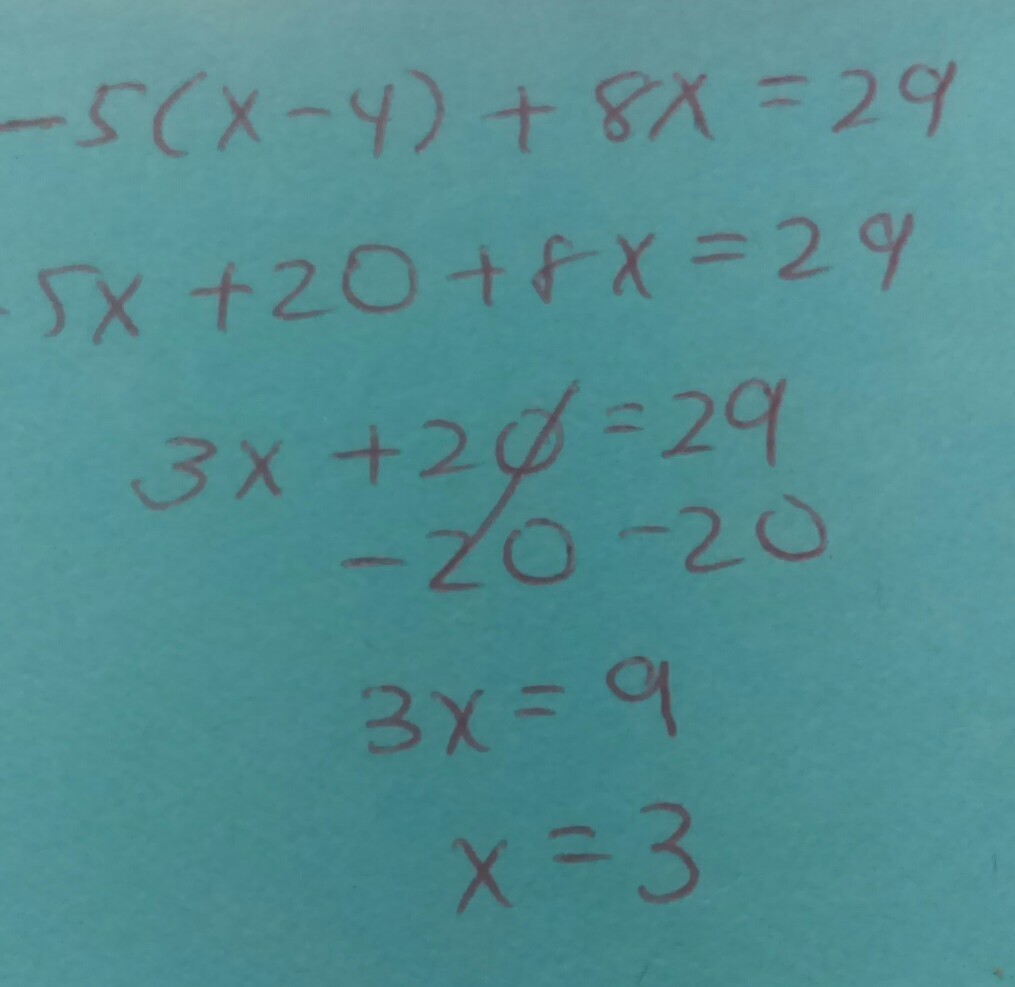 -5(x-4) + 8x = 29
-5x + 20 + 8x = 29
3x + 20 = 29
-20 -20
3x = 9
x = 3